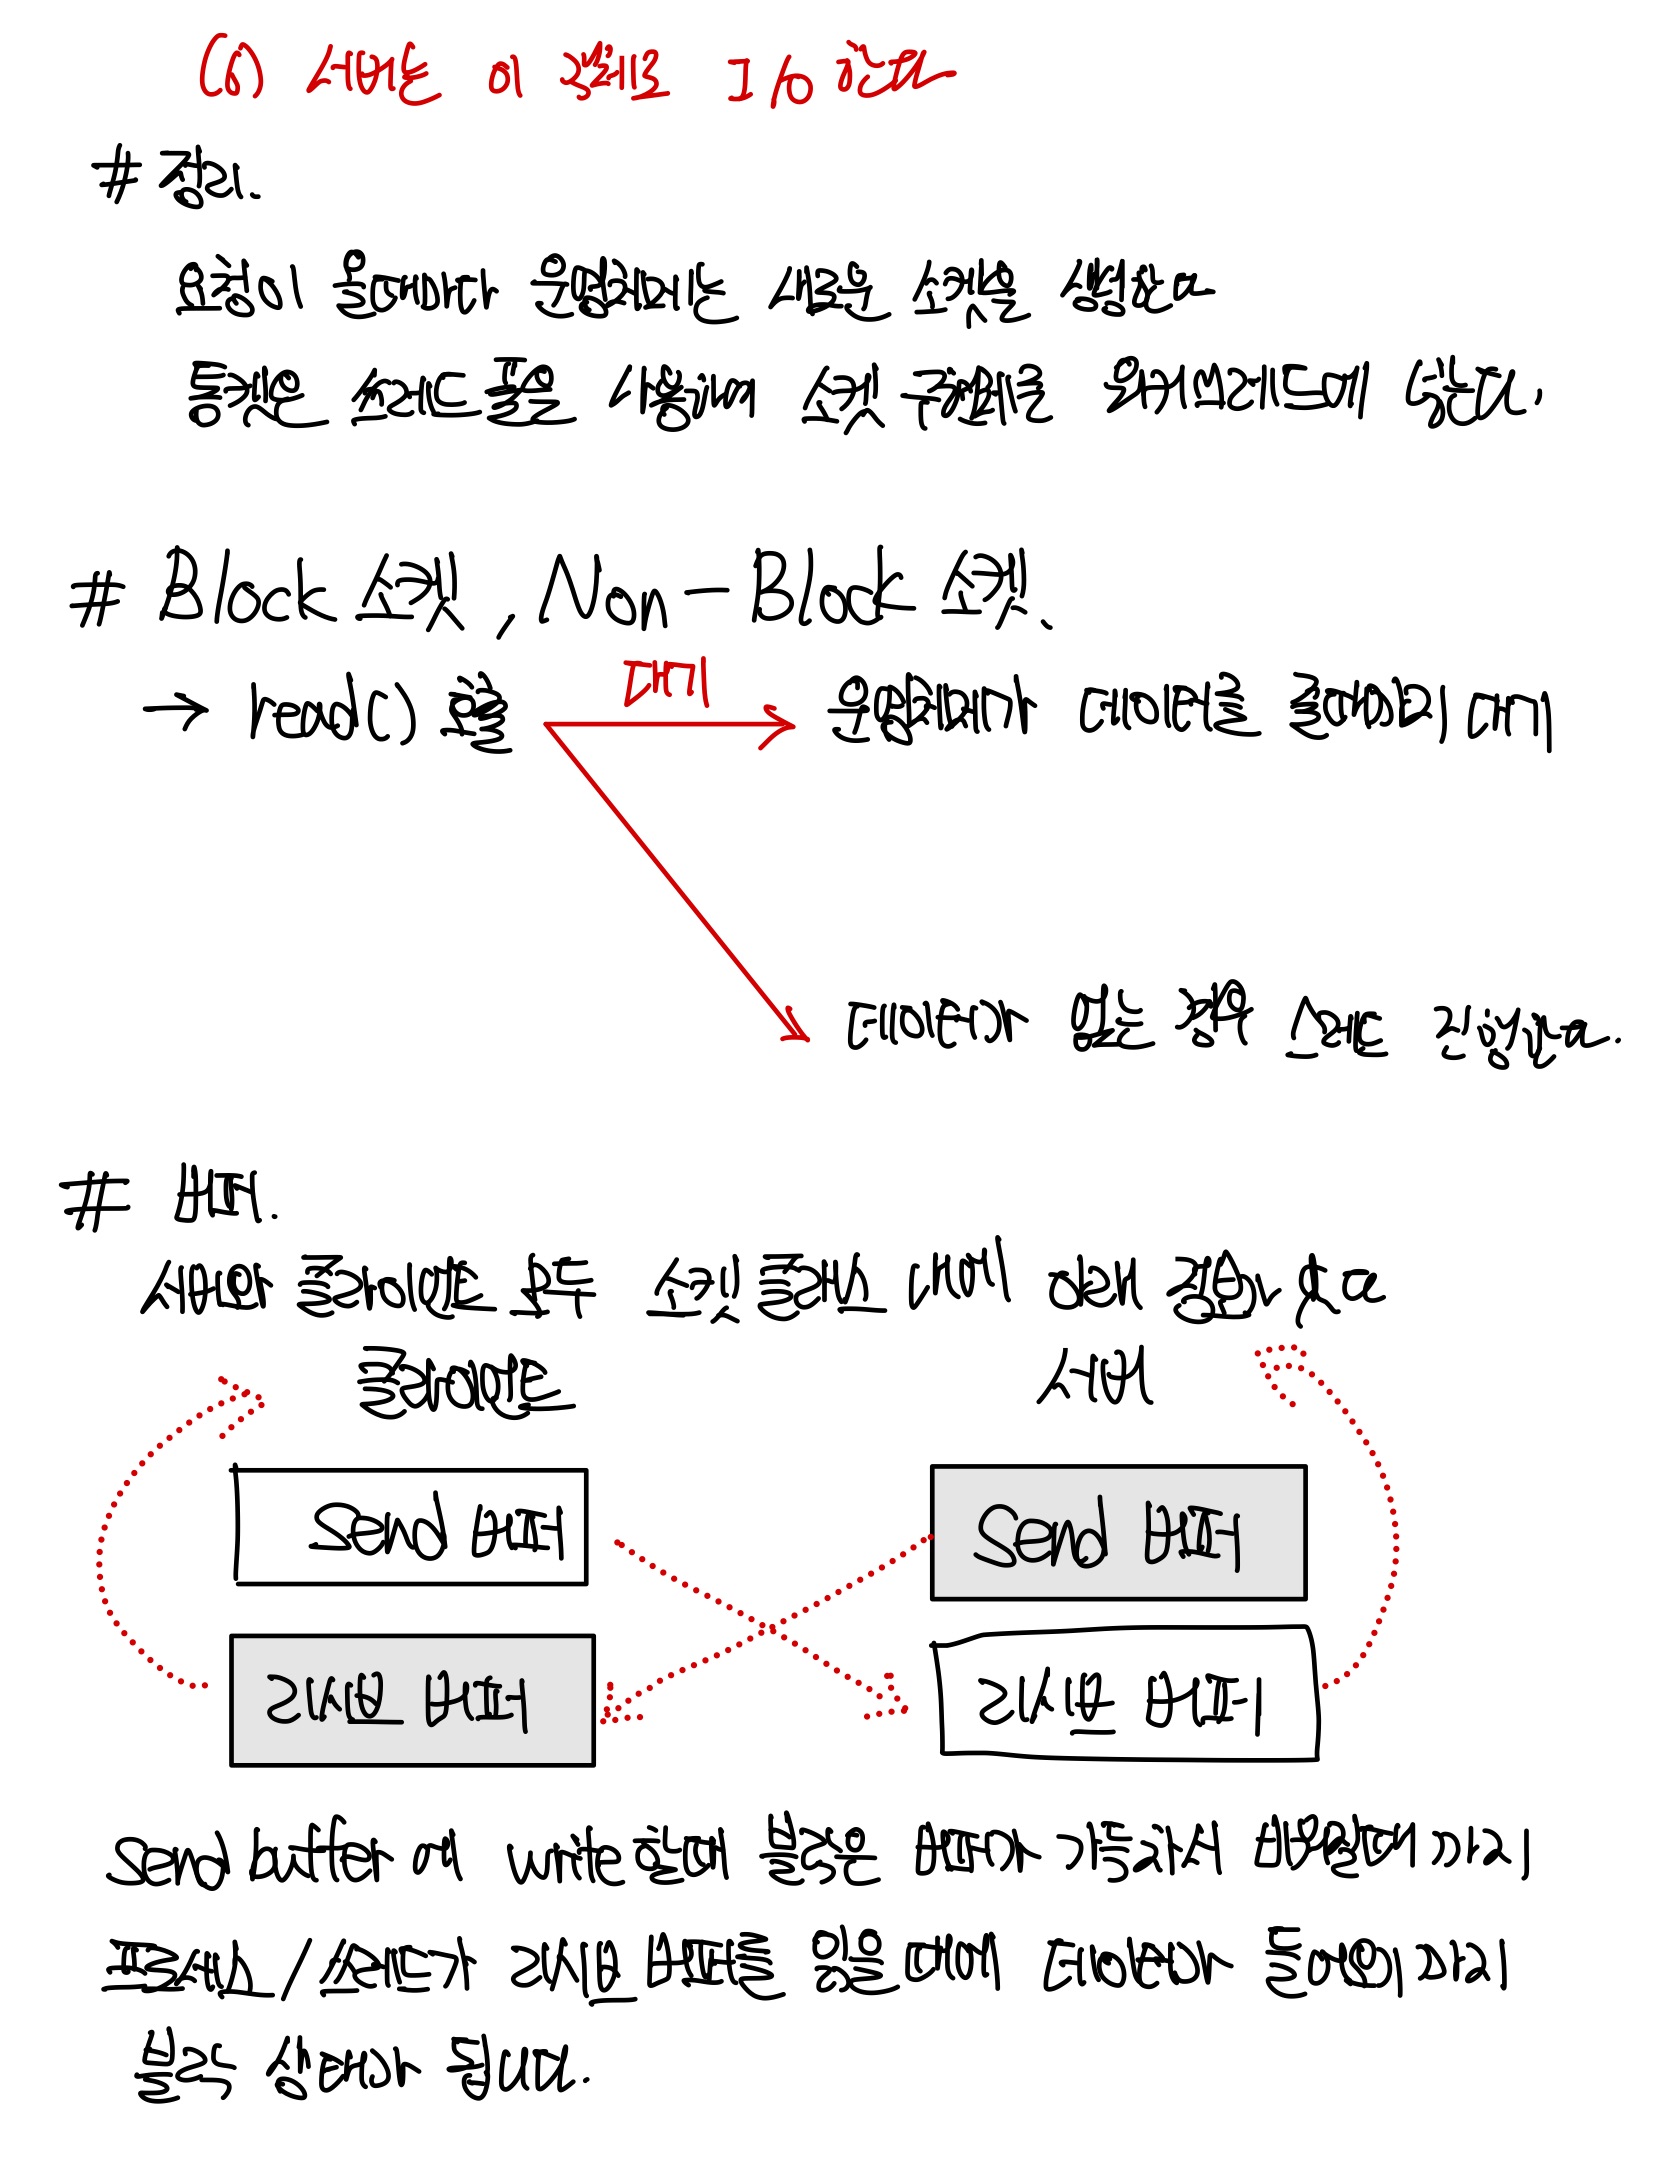 (6) 서버는 이 객체로 I/O 한다
# 정리.
요청이 올때마다 운영체제는 새로운 소켓을 생성한다
톰캣은 쓰레드 풀을 사용하여 소켓 구현체를 워커쓰레드에 넣는다.
# Block 소켓, Non-Block 소켓.
→ read() 호출
대기
운영체제가 데이터를 줄때까지 대기
데이터가 없는 경우 스레드 진행한다.
# 버퍼.
서버와 클라이언트 모두 소켓 클래스 내에 아래 정보가 있다
클라이언트
서버
Send 버퍼
Send 버퍼
리시브 버퍼
리시브 버퍼
Send buffer에 write할때 블락은 버퍼가 가득차서 비워질때까지
프로세스/쓰레드가 리시브 버퍼를 읽을때에 데이터가 들어오기까지
블락 상태가 됩니다.